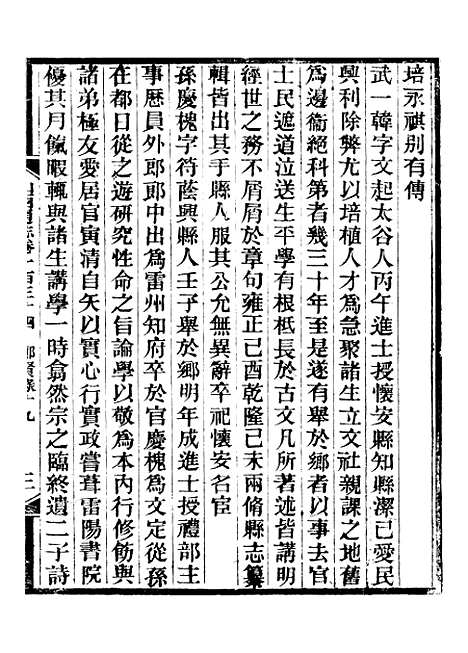 培永祺别有傳
武一韓字文起太谷人丙午進士授懷安縣知縣潔已愛民
興利除弊尤以培植人才為急聚諸生立文社親課之地舊
為邊衞絕科第者幾三十年至是遂有舉於鄉者以事去官
士民遮道泣送生平學有根柢長於古文凡所著述皆講明
經世之務不屑屑於章句雍正己酉乾隆己未兩脩縣志纂
輯皆出其手縣人服其公允無異辭卒祀懷安名宦
孫慶槐字符蔭興縣人壬子舉於鄉明年成進士授禮部主
事歷員外郎郎中出為雷州知府卒於官慶槐為文定從孫
在都日從之遊研究性命之旨論學以敬為本內行修飭與
諸弟極友愛居官寅清自矢以實心行實政嘗葺雷陽書院
優其月餼暇輒與諸生講學一時翕然宗之臨終遺二子詩
志卷一百三十四 鄉賢錄十九 三